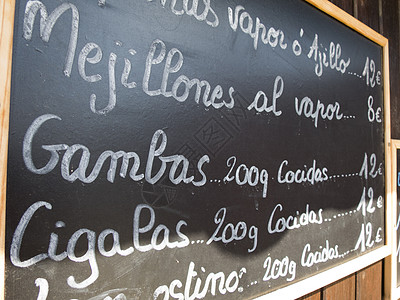 vapor ó Ajillo.... 12€
Mejillones al vapor... 8€
Gambas... 200g Cocidas......... 12€
Cigalas.. 200g Cocidas...... 12€
200g Cocidas...... 12€